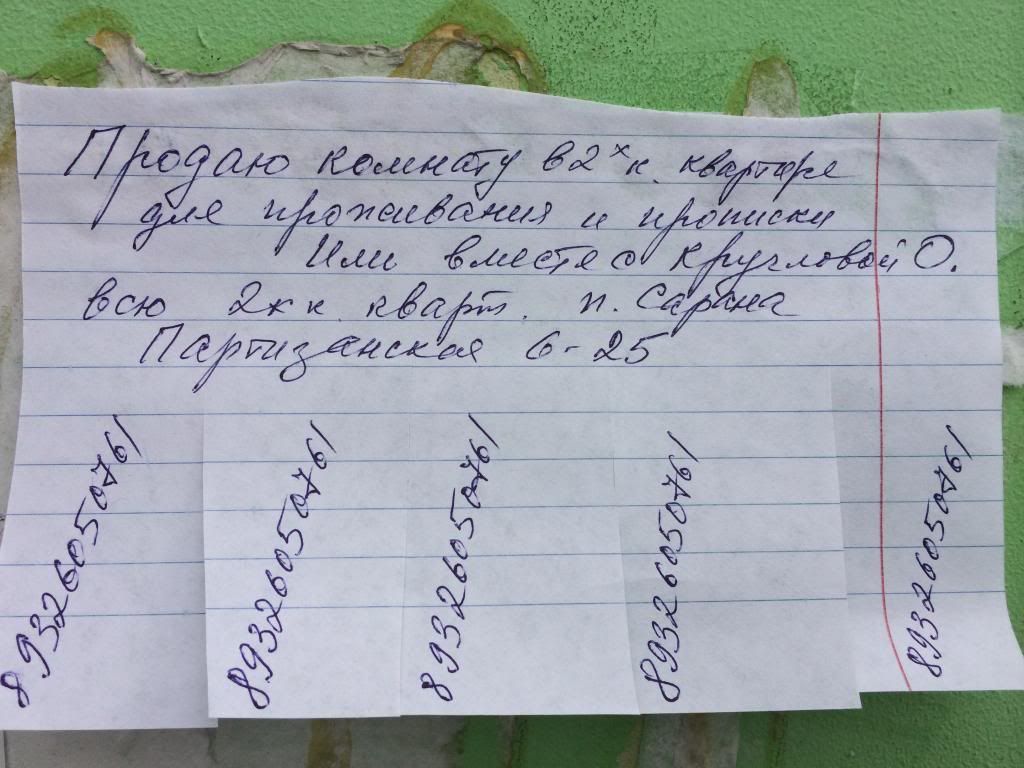 Продаю комнату в 2х к. квартире
для проживания и прописки
Или вместе с Кругловой О.
всю 2х к. кварт. п. Сарана
Партизанская 6-25
89326050761
89326050761
89326050761
89326050761
89326050761